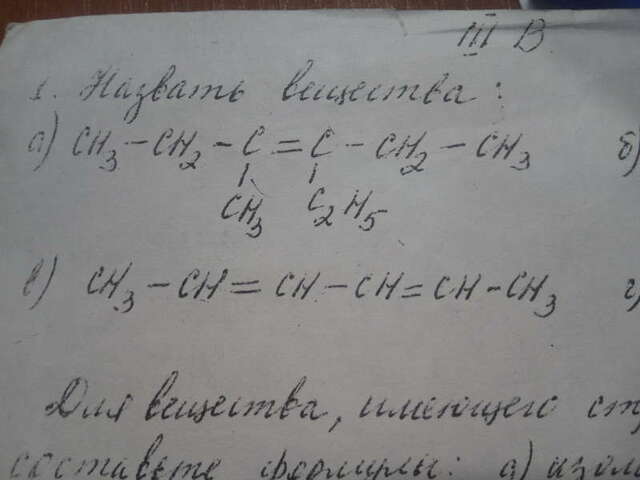 III В
1. Назвать вещества:
а) CH3–CH2–C=C–CH2–CH3 б)
CH3 C2H5
в) CH3–CH=CH–CH=CH–CH3 г)
Для вещества, имеющего ст
составьте формулы: а) изом